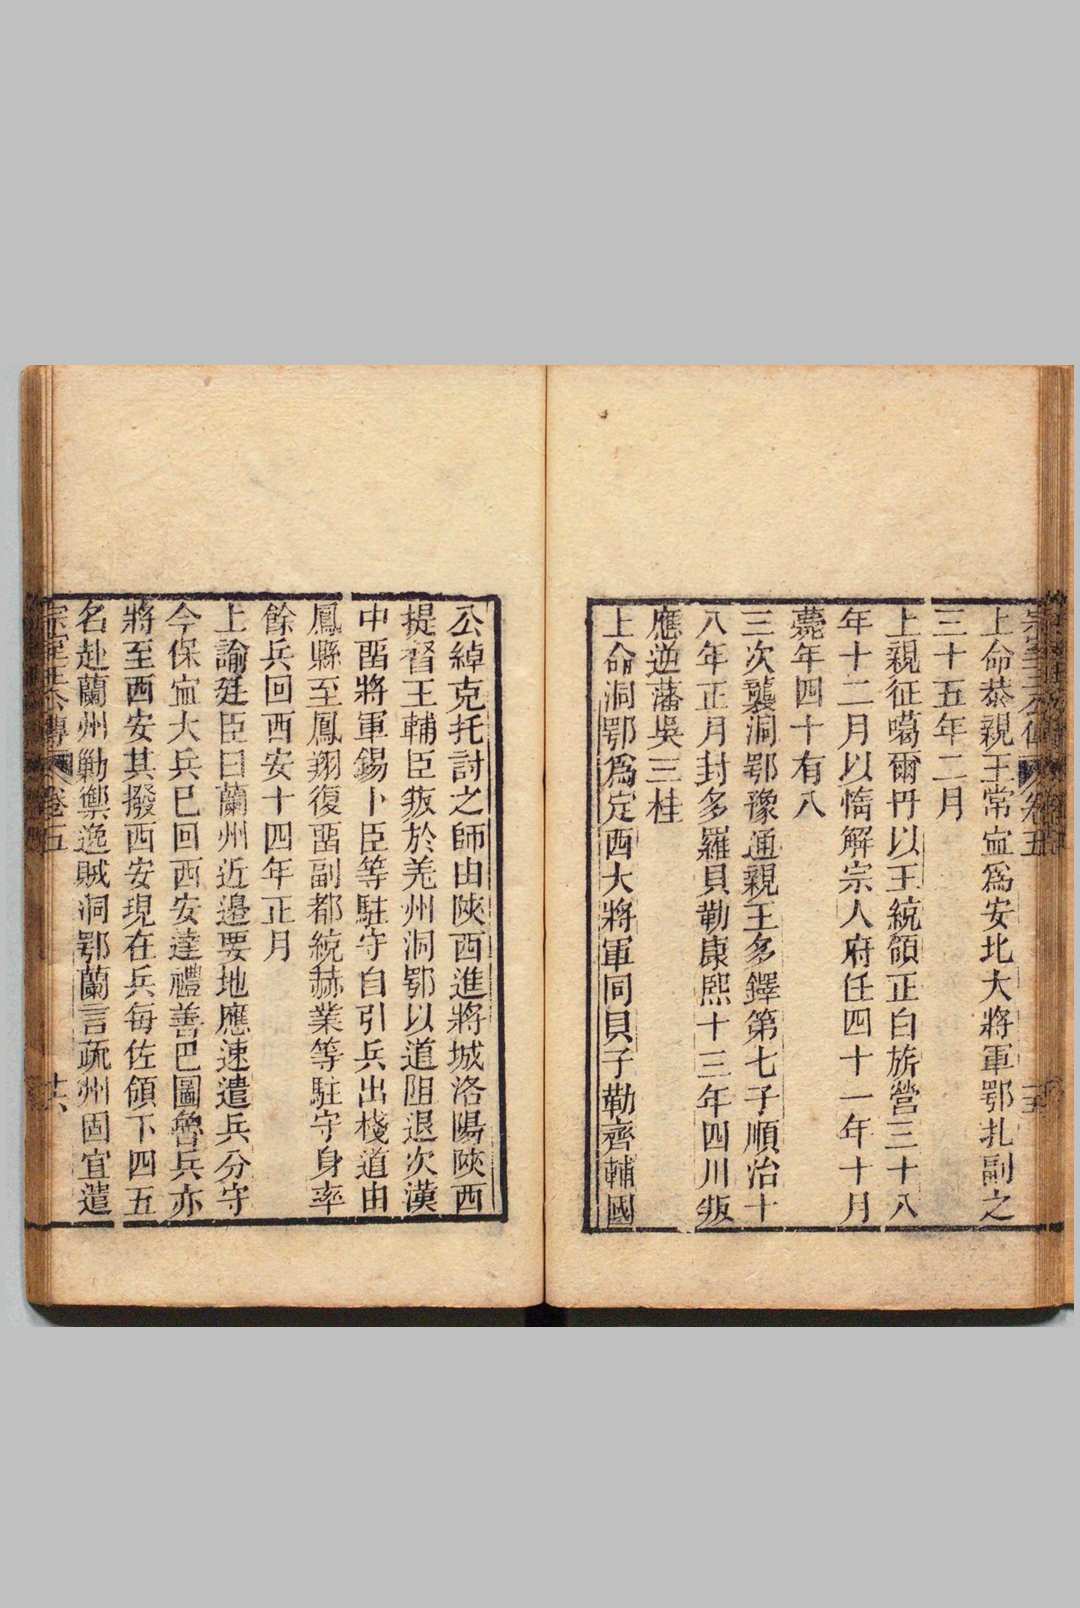 上命恭親王常寍爲安北大將軍鄂扎副之
三十五年二月
上親征噶爾丹以王統領正白旂營三十八
年十二月以惰解宗人府任四十一年十月
薨年四十有八
三次襲洞鄂豫通親王多鐸第七子順治十
八年正月封多羅貝勒康熙十三年四川叛
應逆藩吳三桂
上命洞鄂爲定西大將軍同貝子勒齊輔國
公綽克托討之師由陝西進將城洛陽陝西
提督王輔臣叛於羌州洞鄂以道阻退次漢
中畱將軍錫卜臣等駐守自引兵出棧道由
鳳縣至鳳翔復畱副都統赫業等駐守身率
餘兵回西安十四年正月
上諭廷臣曰蘭州近邉要地應速遣兵分守
今保寍大兵已回西安達禮善巴圖魯兵亦
將至西安其撥西安現在兵每佐領下四五
名赴蘭州勦禦逸賊洞鄂蘭言疏州固宜遣
宗室王公傳 卷五 廿六